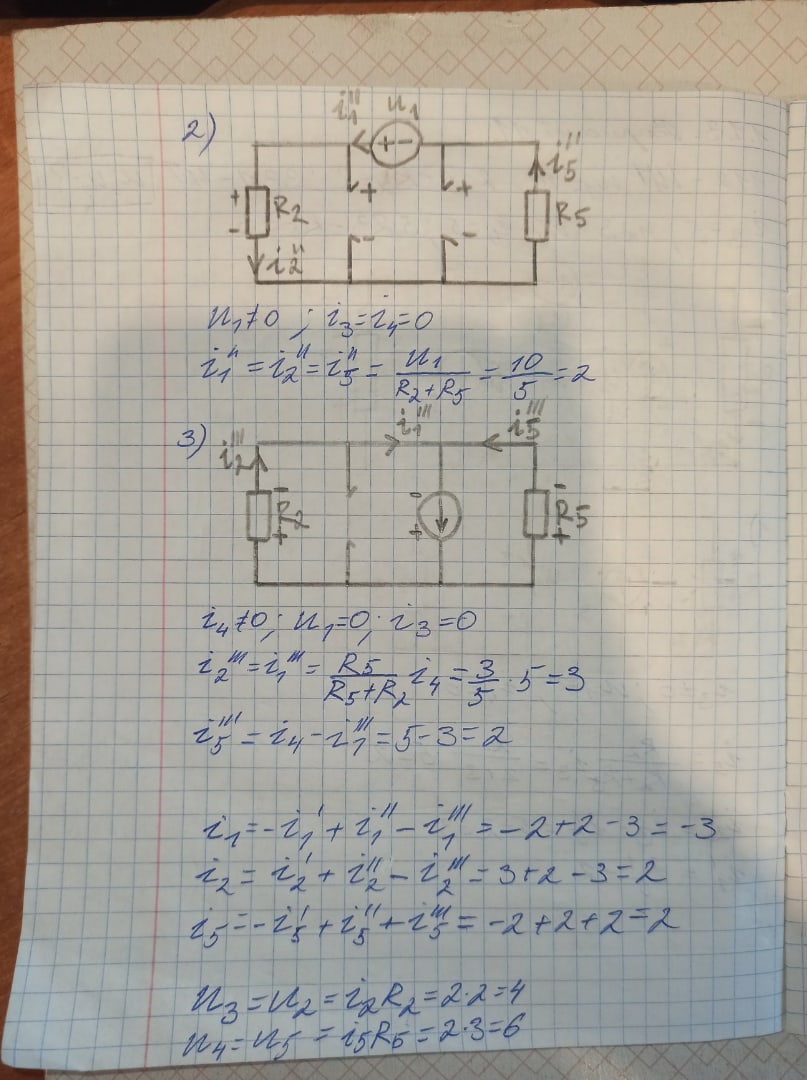 2)
i₁''' u₁
+ -
+ R₂ - + + i₅'' R₅
i₂'' - -
u₁≠0 ; i₃=i₄=0
i₁''=i₂''=i₅''= u₁/(R₂+R₅) = 10/5 =2
3) i₂''' i₁''' i₅'''
- R₂ + - + - R₅ +
i₄≠0; u₁=0; i₃=0
i₂'''=i₁'''= R₅/(R₅+R₂) i₄ = 3/5 · 5=3
i₅'''=i₄-i₁'''=5-3=2
i₁=-i₁'+i₁''-i₁'''=-2+2-3=-3
i₂=i₂'+i₂''-i₂'''=3+2-3=2
i₅=-i₅'+i₅''+i₅'''=-2+2+2=2
u₃=u₂=i₂R₂=2·2=4
u₄=u₅=i₅R₅=2·3=6